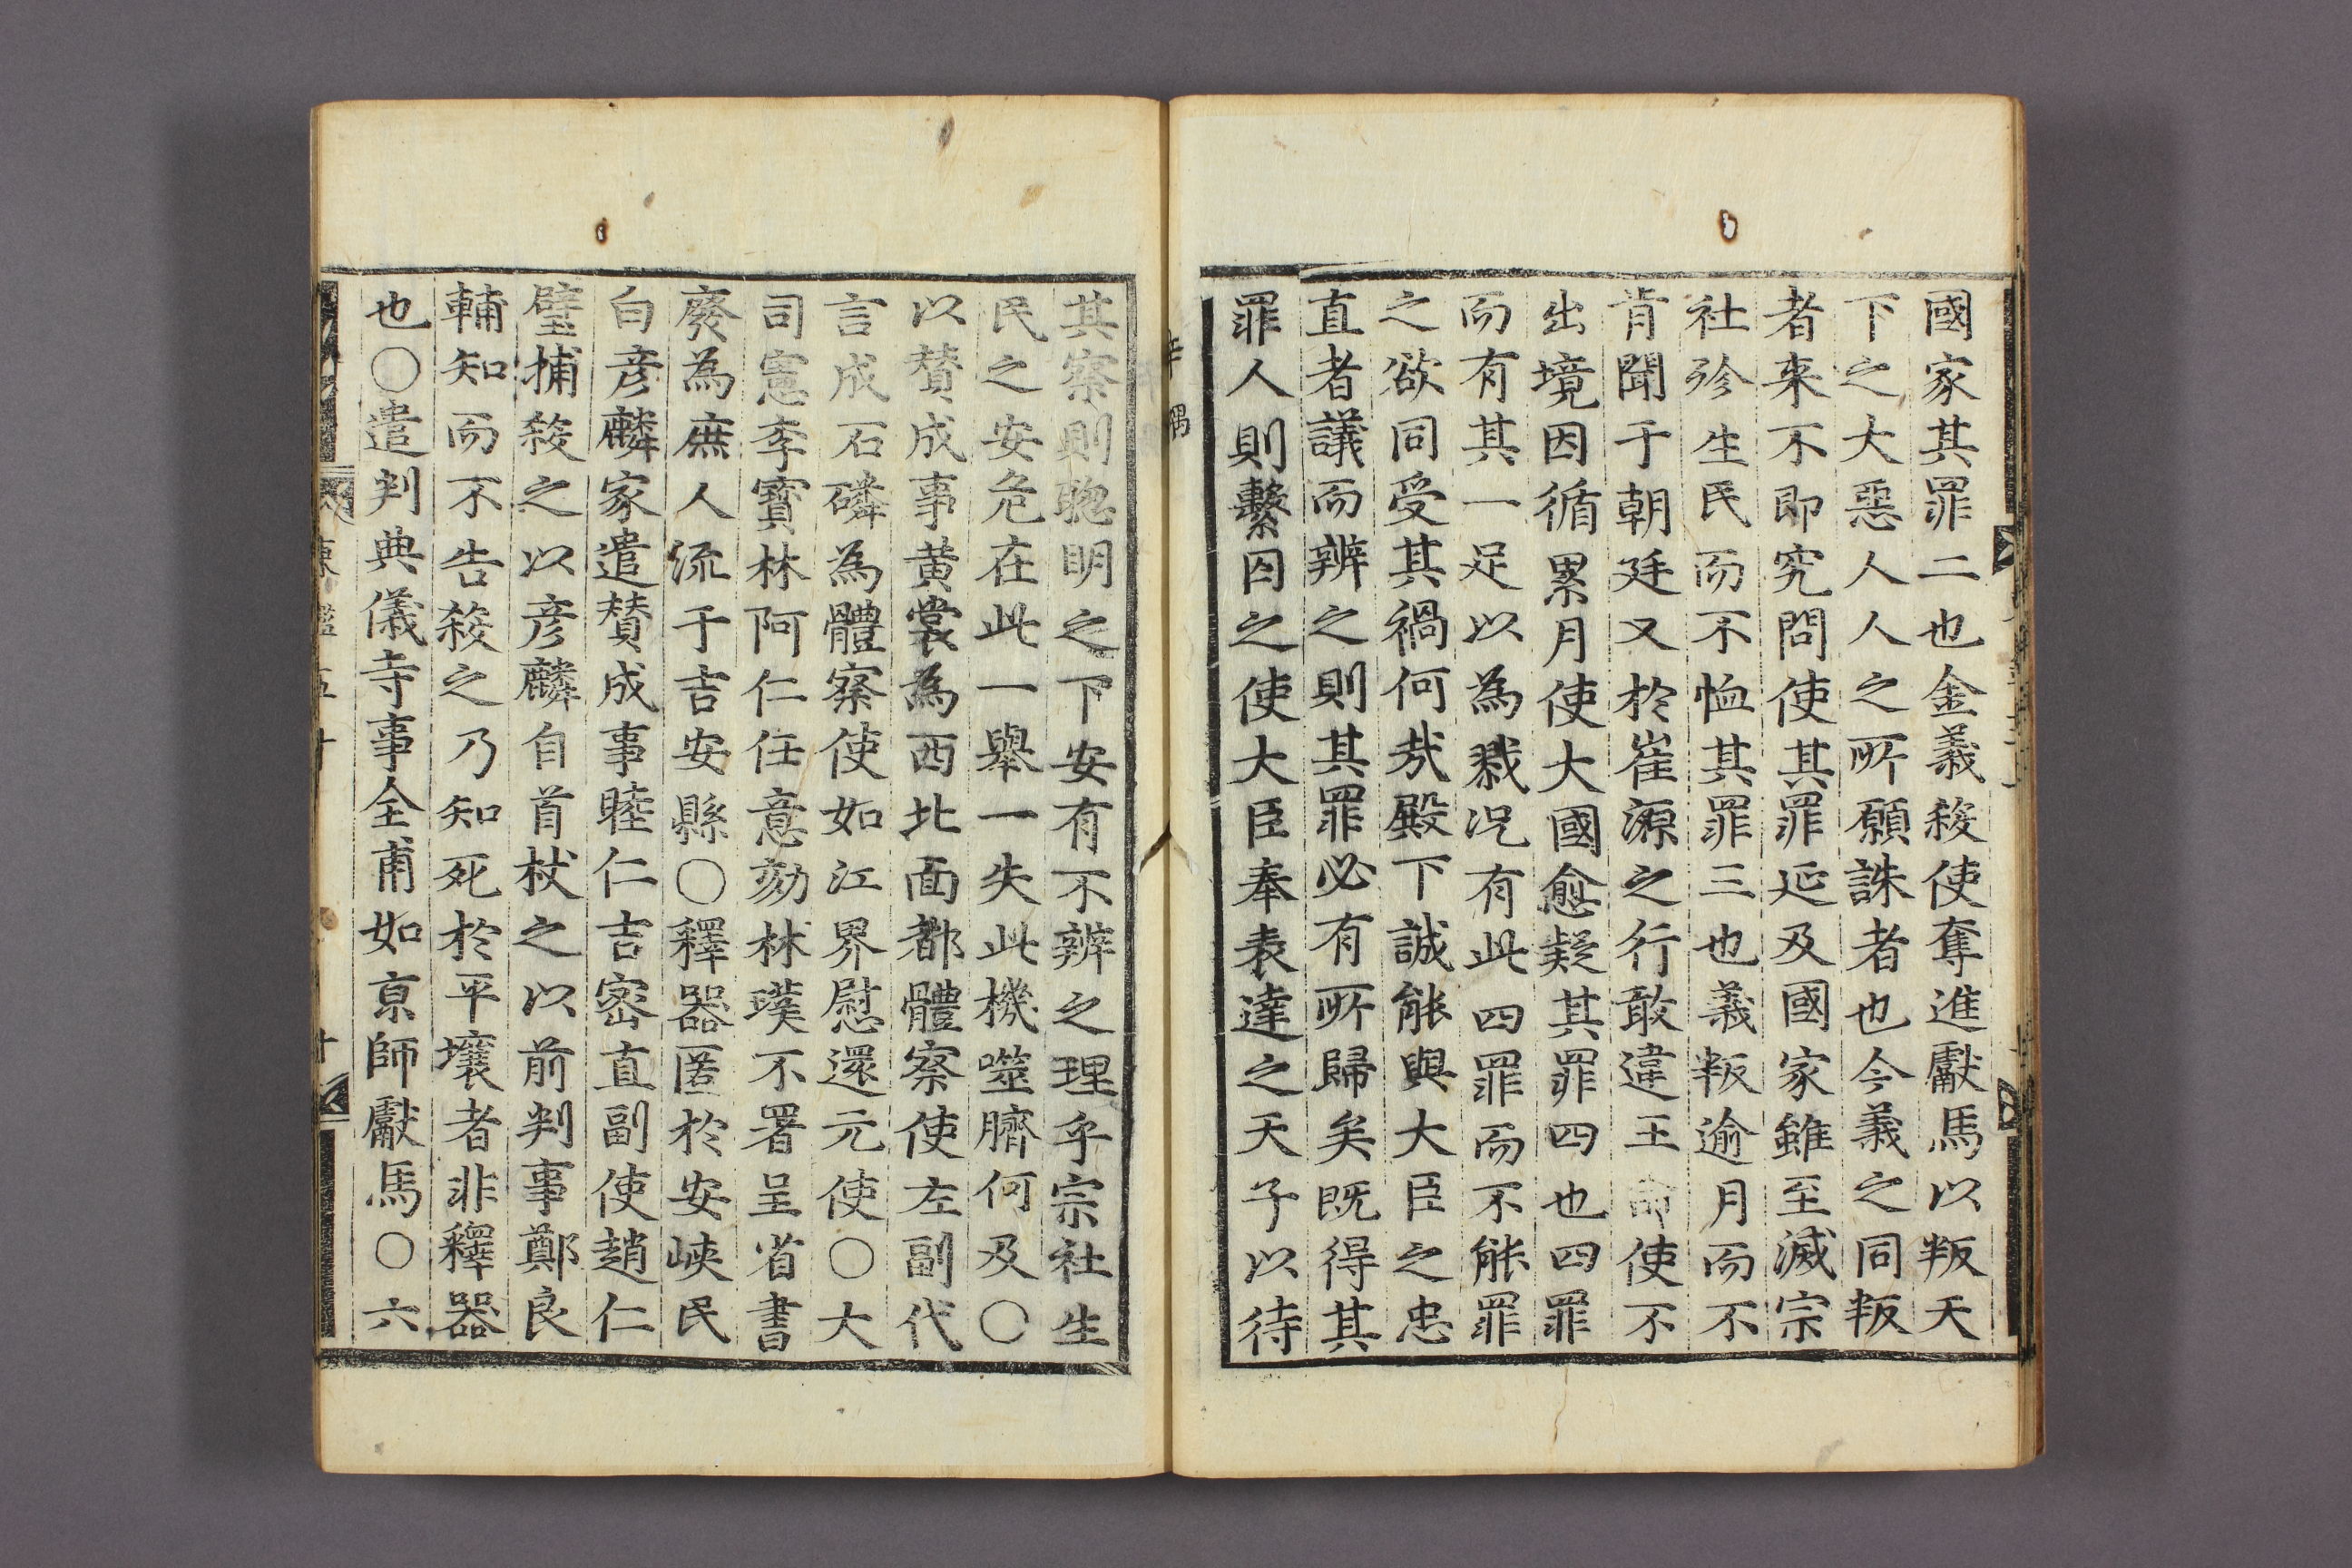 國家其罪二也金義殺使奪進獻馬以叛天
下之大惡人人之所願誅者也今義之同叛
者来不即究問使其罪延及國家雖至滅宗
社殄生民而不恤其罪三也義叛逾月而不
肯聞于朝廷又於崔源之行敢違王命使不
出境因循累月使大國愈疑其罪四也四罪
而有其一足以為戮况有此四罪而不能罪
之欲同受其禍何㢤殿下誠能與大臣之忠
直者議而辨之則其罪必有所歸矣既得其
罪人則繫囚之使大臣奉表達之天子以待
辛禑
其察則聦明之下安有不辨之理乎宗社生
民之安危在此一舉一失此機噬臍何及〇
以賛成事黄裳為西北面都體察使左副代
言成石磷為體察使如江界慰還元使〇大
司憲李寳林阿仁任意劾林樸不署呈省書
廢為庶人流于吉安縣〇釋器匿於安峽民
白彦麟家遣賛成事睦仁吉密直副使趙仁
璧捕殺之以彦麟自首杖之以前判事鄭良
輔知而不告殺之乃知死於平壤者非釋器
也〇遣判典儀寺事全甫如京師獻馬〇六
東鑑五十